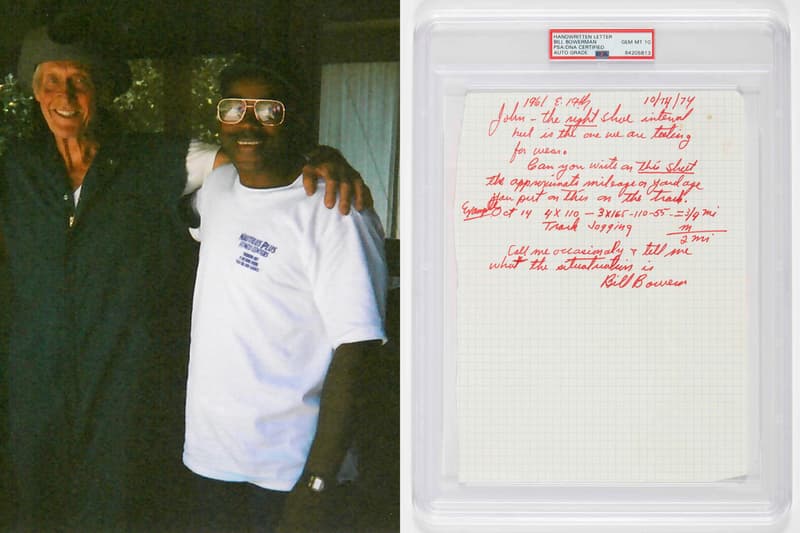 NAUTILUS PLUS
FITNESS CENTERS
HANDWRITTEN LETTER
BILL BOWERMAN
PSA/DNA CERTIFIED
AUTO GRADE
GEM MT 10
84205813
1961 E. 19th 10/14/74
John – the right shoe
heel is the one we are testing
for wear.
Can you write on this sheet
the approximate mileage or yardage
you put on this on the track.
Example Oct 14 4 X 110 – 3X165-110-55 = 3/4 mi
Track Jogging
2 mi
Call me occasionaly & tell me
what the situatuation is
Bill Bowerman